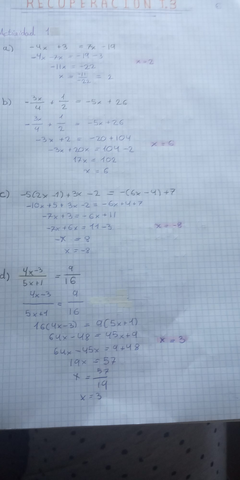 RECUPERACION 1.3
a) -4x + 3 = 7x - 19
-4x - 7x = -19 - 3
-11x = -22
x = 2
x = 2
b) -3x/4 + 1/2 = -5x + 26
-3x/4 + 1/2 = -5x + 26
-3x + 2 = -20x + 104
-3x + 20x = 104 - 2
x = 6
17x = 102
x = 6
c) -5(2x - 1) + 3x - 2 = -(6x - 4) + 7
-10x + 5 + 3x - 2 = -6x + 4 + 7
-7x + 3 = -6x + 11
-7x + 6x = 11 - 3
x = -8
-x = 8
x = -8
d) 4x-3/5x+1 = 9/16
4x-3/5x+1 = 9/16
16(4x-3) = 9(5x+1)
x = 3
64x - 48 = 45x + 9
64x - 45x = 9 + 48
19x = 57
x = 57/19
x = 3